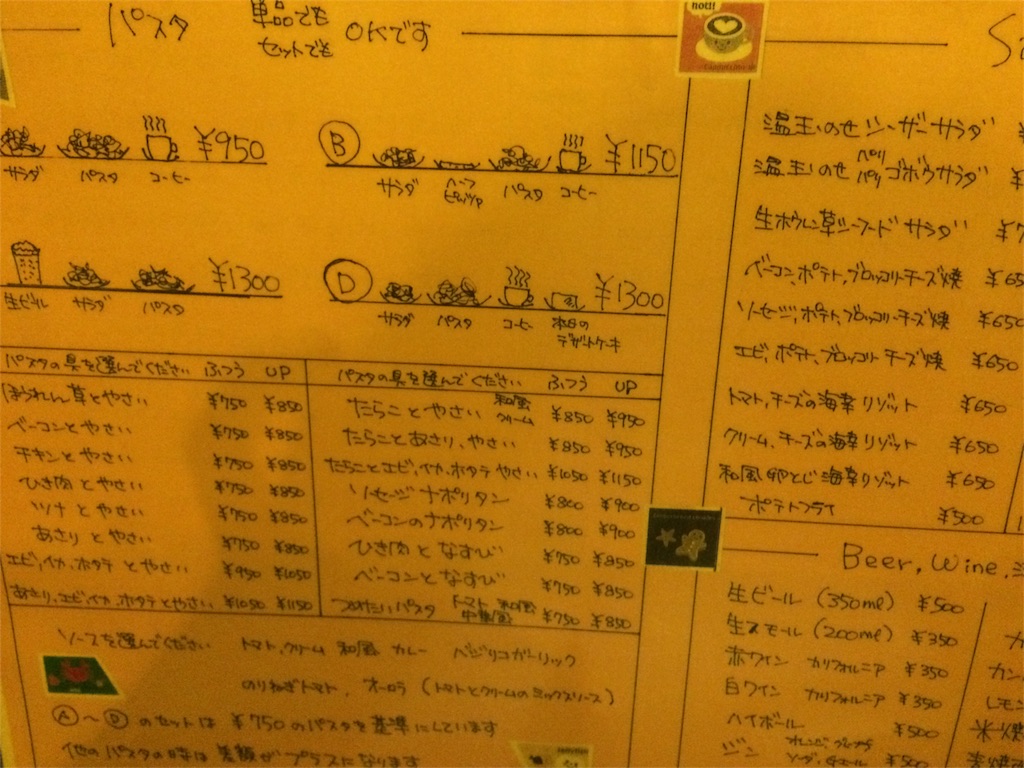 パスタ 単品でも セットでも OKです
サラダ パスタ コーヒー ¥950
B サラダ ハーフピッツァ パスタ コーヒー ¥1150
生ビール サラダ パスタ ¥1300
D サラダ パスタ コーヒー 本日のデザートケーキ ¥1300
パスタの具を選んでください ふつう UP
ほうれん草とやさい ¥750 ¥850
ベーコンとやさい ¥750 ¥850
チキンとやさい ¥750 ¥850
ひき肉とやさい ¥750 ¥850
ツナとやさい ¥750 ¥850
あさりとやさい ¥750 ¥850
エビ,イカ,ホタテとやさい ¥950 ¥1050
あさり,エビ,イカ,ホタテとやさい ¥1050 ¥1150
パスタの具を選んでください ふつう UP
たらことやさい 和風 クリーム ¥850 ¥950
たらことあさり,やさい ¥850 ¥950
たらことエビ,イカ,ホタテやさい ¥1050 ¥1150
ソーセージナポリタン ¥800 ¥900
ベーコンのナポリタン ¥800 ¥900
ひき肉となすび ¥750 ¥850
ベーコンとなすび ¥750 ¥850
つめたいパスタ トマト 和風 中華風 ¥750 ¥850
ソースを選んでください トマト,クリーム 和風 カレー バジリコガーリック
のりねぎトマト, オーロラ (トマトとクリームのミックスソース)
A〜Dのセットは ¥750のパスタを基準にしています
他のパスタの時は差額がプラスになります
温玉のせシーザーサラダ
温玉のせパリパリゴボウサラダ
生ホウレン草シーフードサラダ
ベーコン,ポテト,ブロッコリーチーズ焼
ソーセージ,ポテト,ブロッコリーチーズ焼 ¥650
エビ,ポテト,ブロッコリーチーズ焼 ¥650
トマト,チーズの海幸リゾット ¥650
クリーム,チーズの海幸リゾット ¥650
和風卵とじ海幸リゾット ¥650
ポテトフライ ¥500
Beer, Wine,
生ビール (350ml) ¥500
生スモール (200ml) ¥350
赤ワイン カリフォルニア ¥350
白ワイン カリフォルニア ¥350
ハイボール ¥500
ジン ¥500